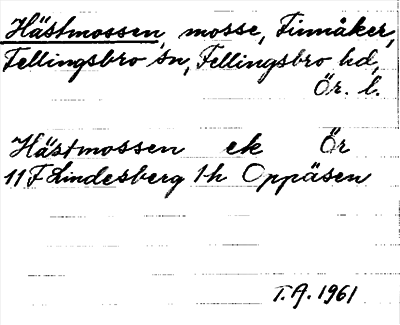 Hästmossen, mosse, Finnåker,
Fellingsbro sn, Fellingsbro hd,
Ör. l.
Hästmossen ek Ör
11F Lindesberg 1h Oppåsen
T.A. 1961